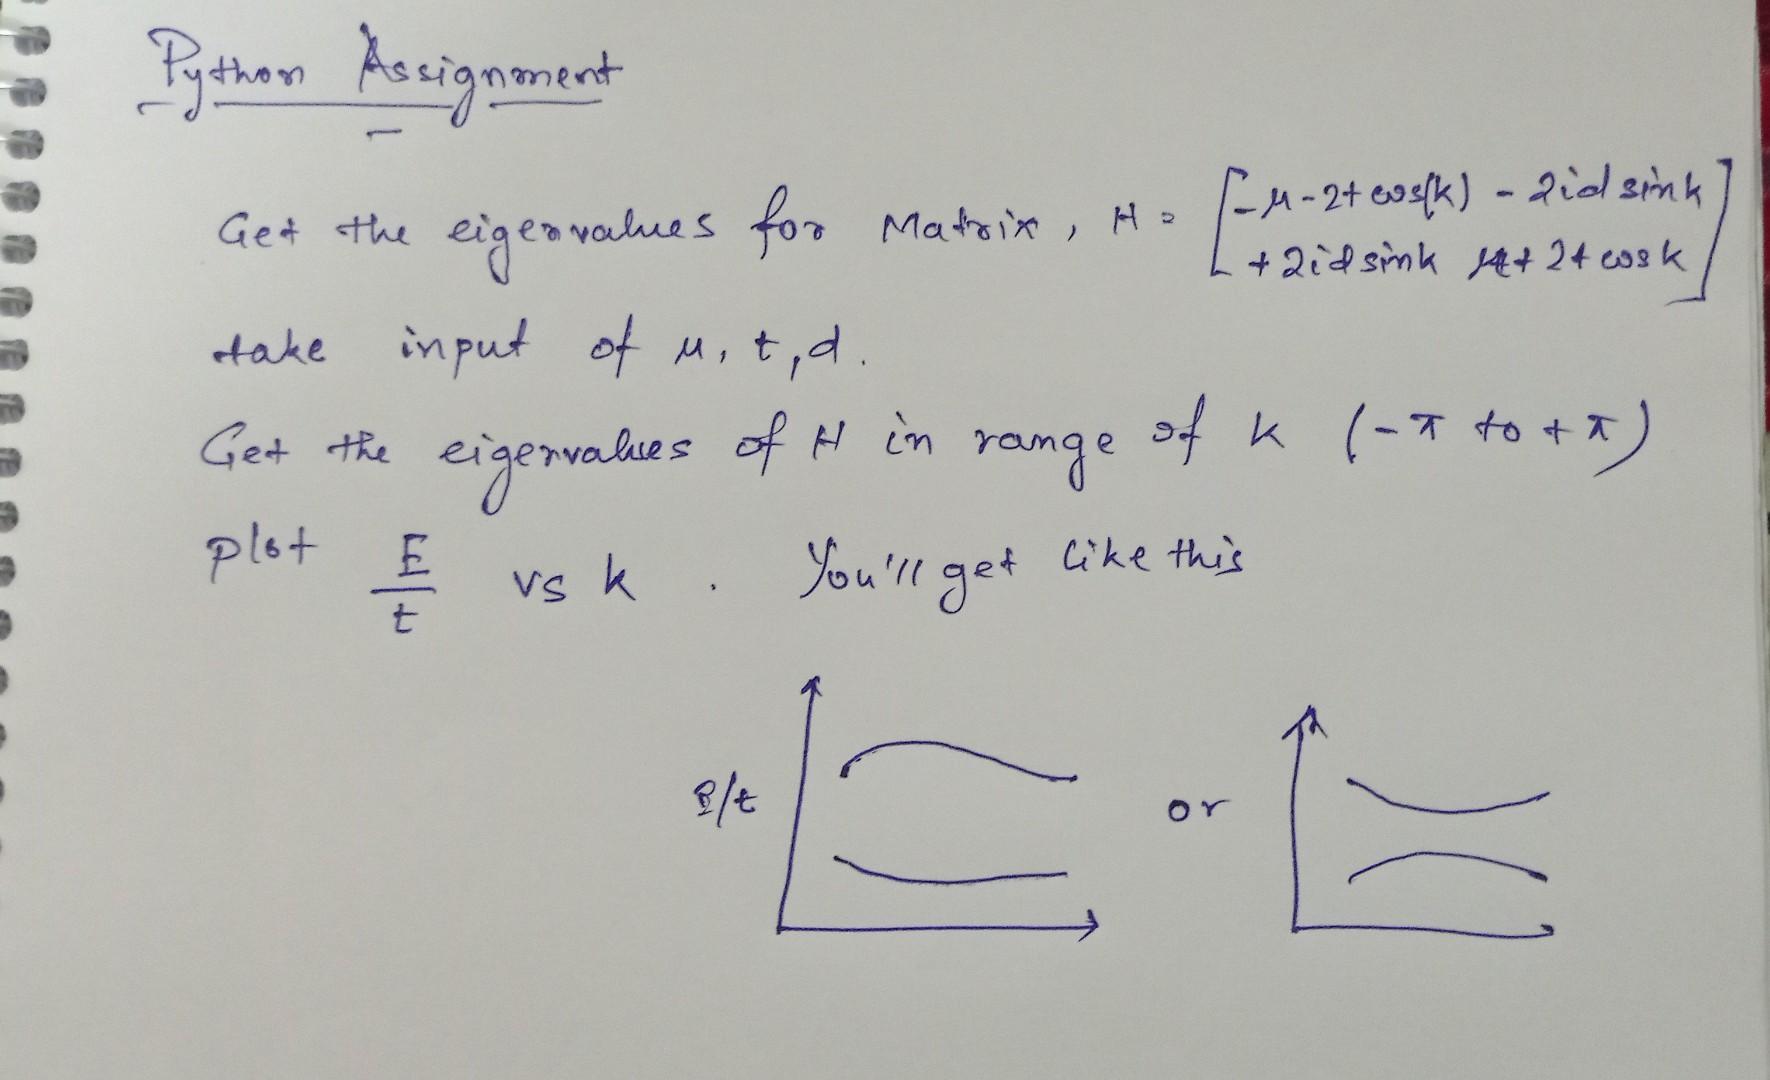 Python Assignment
Get the eigenvalues for Matrix, H = [-μ-2t cos(k) - 2id sink
+ 2id sink μ + 2t cos k]
take input of μ, t, d.
Get the eigenvalues of H in range of k (-π to +π)
plot E/t vs k. You'll get like this
E/t or